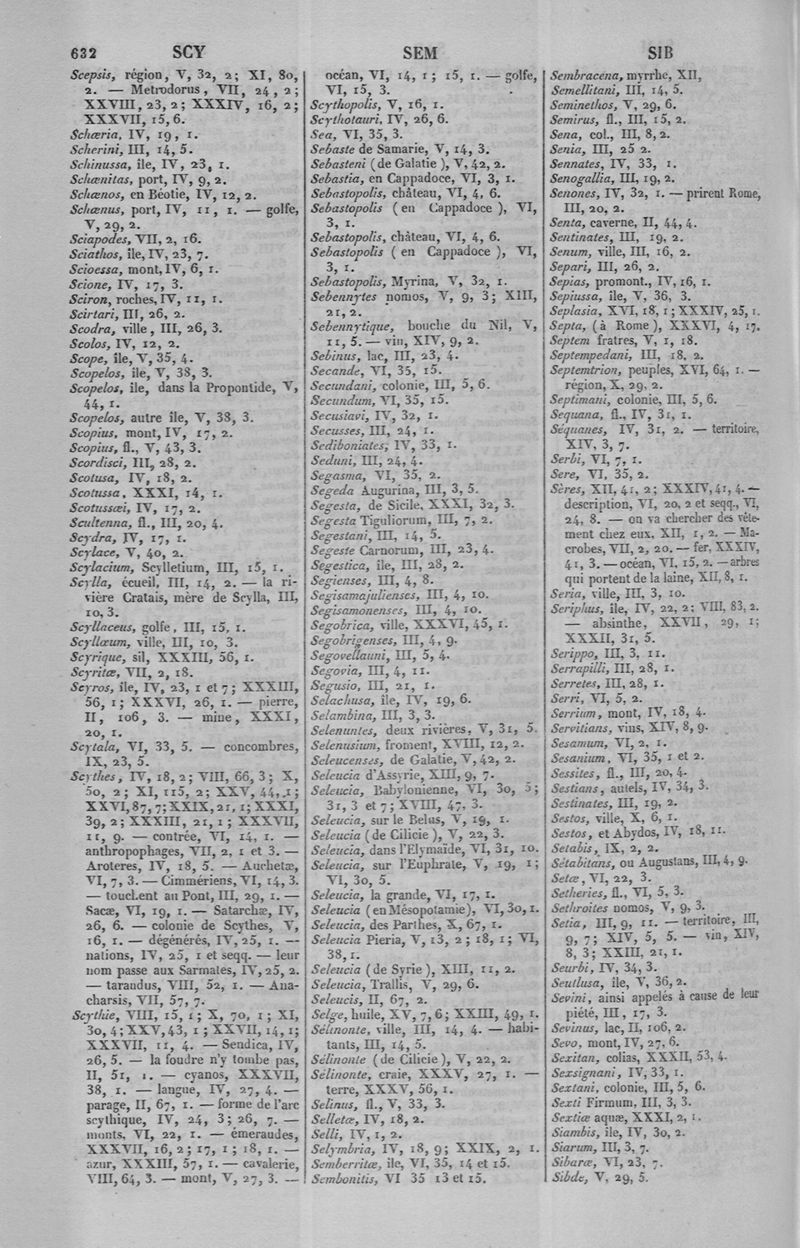 632 SCY SEM SIB
Scepsis, région, V, 32, 2; XI, 80,
2. — Metrodorus, VII, 24, 2;
XXVIII, 23, 2; XXXIV, 16, 2;
XXXVII, 15, 6.
Schœria, IV, 19, 1.
Scherini, III, 14, 5.
Schinussa, île, IV, 23, 1.
Schœnitas, port, IV, 9, 2.
Schœnos, en Béotie, IV, 12, 2.
Schœnus, port, IV, 11, 1. — golfe,
V, 29, 2.
Sciapodes, VII, 2, 16.
Sciathos, île, IV, 23, 7.
Scioessa, mont, IV, 6, 1.
Scione, IV, 17, 3.
Sciron, roches, IV, 11, 1.
Scirtari, III, 26, 2.
Scodra, ville, III, 26, 3.
Scolos, IV, 12, 2.
Scope, île, V, 35, 4.
Scopelos, île, V, 38, 3.
Scopelos, ile, dans la Propontide, V,
44, 1.
Scopelos, autre île, V, 38, 3.
Scopius, mont, IV, 17, 2.
Scopius, fl., V, 43, 3.
Scordisci, III, 28, 2.
Scotusa, IV, 18, 2.
Scotussa, XXXI, 14, 1.
Scotussæi, IV, 17, 2.
Scultenna, fl., III, 20, 4.
Scydra, IV, 17, 1.
Scylace, V, 40, 2.
Scylacium, Scylletium, III, 15, 1.
Scylla, écueil, III, 14, 2. — la ri-
vière Cratais, mère de Scylla, III,
10, 3.
Scyllaceus, golfe, III, 15, 1.
Scyllæum, ville, III, 10, 3.
Scyrique, sil, XXXIII, 56, 1.
Scyritæ, VII, 2, 18.
Scyros, île, IV, 23, 1 et 7; XXXIII,
56, 1; XXXVI, 26, 1. — pierre,
II, 106, 3. — mine, XXXI,
20, 1.
Scytala, VI, 33, 5. — concombres,
IX, 23, 5.
Scythes, IV, 18, 2; VIII, 66, 3; X,
50, 2; XI, 115, 2; XXV, 44, 1;
XXVI, 87, 7; XXIX, 21, 1; XXXI,
39, 2; XXXIII, 21, 1; XXXVII,
11, 9. — contrée, VI, 14, 1. —
anthropophages, VII, 2, 1 et 3. —
Aroteres, IV, 18, 5. — Auchetæ,
VI, 7, 3. — Cimmériens, VI, 14, 3.
— touchent au Pont, III, 29, 1. —
Sacæ, VI, 19, 1. — Satarchæ, IV,
26, 6. — colonie de Scythes, V,
16, 1. — dégénérés, IV, 25, 1. —
nations, IV, 25, 1 et seqq. — leur
nom passe aux Sarmates, IV, 25, 2.
— tarandus, VIII, 52, 1. — Ana-
charsis, VII, 57, 7.
Scythie, VIII, 15, 1; X, 70, 1; XI,
30, 4; XXV, 43, 1; XXVII, 14, 1;
XXXVII, 11, 4. — Sendica, IV,
26, 5. — la foudre n'y tombe pas,
II, 51, 1. — cyanos, XXXVII,
38, 1. — langue, IV, 27, 4. —
parage, II, 67, 1. — forme de l'arc
scythique, IV, 24, 3; 26, 7. —
monts, VI, 22, 1. — émeraudes,
XXXVII, 16, 2; 17, 1; 18, 1. —
azur, XXXIII, 57, 1. — cavalerie,
VIII, 64, 3. — mont, V, 27, 3. —
océan, VI, 14, 1; 15, 1. — golfe,
VI, 15, 3.
Scythopolis, V, 16, 1.
Scythotauri, IV, 26, 6.
Sea, VI, 35, 3.
Sebaste de Samarie, V, 14, 3.
Sebasteni (de Galatie), V, 42, 2.
Sebastia, en Cappadoce, VI, 3, 1.
Sebastopolis, château, VI, 4, 6.
Sebastopolis (en Cappadoce), VI,
3, 1.
Sebastopolis, château, VI, 4, 6.
Sebastopolis (en Cappadoce), VI,
3, 1.
Sebastopolis, Myrina, V, 32, 1.
Sebennytes nomos, V, 9, 3; XIII,
21, 2.
Sebennytique, bouche du Nil, V,
11, 5. — vin, XIV, 9, 2.
Sebinus, lac, III, 23, 4.
Secande, VI, 35, 15.
Secundani, colonie, III, 5, 6.
Secundum, VI, 35, 15.
Secusiavi, IV, 32, 1.
Secusses, III, 24, 1.
Sediboniates, IV, 33, 1.
Seduni, III, 24, 4.
Segasma, VI, 35, 2.
Segeda Augurina, III, 3, 5.
Segesta, de Sicile, XXXI, 32, 3.
Segesta Tiguliorum, III, 7, 2.
Segestani, III, 14, 5.
Segeste Carnorum, III, 23, 4.
Segestica, île, III, 28, 2.
Segienses, III, 4, 8.
Segisamajulienses, III, 4, 10.
Segisamonenses, III, 4, 10.
Segobrica, ville, XXXVI, 45, 1.
Segobrigenses, III, 4, 9.
Segovellauni, III, 5, 4.
Segovia, III, 4, 11.
Segusio, III, 21, 1.
Selachusa, île, IV, 19, 6.
Selambina, III, 3, 3.
Selenuntes, deux rivières, V, 31, 5.
Selenusium, froment, XVIII, 12, 2.
Seleucenses, de Galatie, V, 42, 2.
Seleucia d'Assyrie, XIII, 9, 7.
Seleucia, Babylonienne, VI, 30, 5;
31, 3 et 7; XVIII, 47, 3.
Seleucia, sur le Belus, V, 19, 1.
Seleucia (de Cilicie), V, 22, 3.
Seleucia, dans l'Elymaïde, VI, 31, 10.
Seleucia, sur l'Euphrate, V, 19, 1;
VI, 30, 5.
Seleucia, la grande, VI, 17, 1.
Seleucia (en Mésopotamie), VI, 30, 1.
Seleucia, des Parthes, X, 67, 1.
Seleucia Pieria, V, 13, 2; 18, 1; VI,
38, 1.
Seleucia (de Syrie), XIII, 11, 2.
Seleucia, Trallis, V, 29, 6.
Seleucis, II, 67, 2.
Selge, huile, XV, 7, 6; XXIII, 49, 1.
Sélinonte, ville, III, 14, 4. — habi-
tants, III, 14, 5.
Sélinonte (de Cilicie), V, 22, 2.
Sélinonte, craie, XXXV, 27, 1. —
terre, XXXV, 56, 1.
Selinus, fl., V, 33, 3.
Selletæ, IV, 18, 2.
Selli, IV, 1, 2.
Selymbria, IV, 18, 9; XXIX, 2, 1.
Semberritæ, ile, VI, 35, 14 et 15.
Sembonitis, VI 35 13 et 15.
Sembracena, myrrhe, XII,
Semellitani, III, 14, 5.
Seminethos, V, 29, 6.
Semirus, fl., III, 15, 2.
Sena, col., III, 8, 2.
Senia, III, 25 2.
Sennates, IV, 33, 1.
Senogallia, III, 19, 2.
Senones, IV, 32, 1. — prirent Rome,
III, 20, 2.
Senta, caverne, II, 44, 4.
Sentinates, III, 19, 2.
Senum, ville, III, 16, 2.
Separi, III, 26, 2.
Sepias, promont., IV, 16, 1.
Sepiussa, île, V, 36, 3.
Seplasia, XVI, 18, 1; XXXIV, 25, 1.
Septa, (à Rome), XXXVI, 4, 17.
Septem fratres, V, 1, 18.
Septempedani, III, 18, 2.
Septemtrion, peuples, XVI, 64, 1. —
région, X, 29, 2.
Septimani, colonie, III, 5, 6.
Sequana, fl., IV, 31, 1.
Séquanes, IV, 31, 2. — territoire,
XIV, 3, 7.
Serbi, VI, 7, 1.
Sere, VI, 35, 2.
Sères, XII, 41, 2; XXXIV, 41, 4. —
description, VI, 20, 2 et seqq., VI,
24, 8. — on va chercher des vête-
ment chez eux, XII, 1, 2. — Ma-
crobes, VII, 2, 20. — fer, XXXIV,
41, 3. — océan, VI, 15, 2. — arbres
qui portent de la laine, XII, 8, 1.
Seria, ville, III, 3, 10.
Seriphus, île, IV, 22, 2; VIII, 83, 2.
— absinthe, XXVII, 29, 1;
XXXII, 31, 5.
Serippo, III, 3, 11.
Serrapilli, III, 28, 1.
Serretes, III, 28, 1.
Serri, VI, 5, 2.
Serrium, mont, IV, 18, 4.
Servitians, vins, XIV, 8, 9.
Sesamum, VI, 2, 1.
Sesanium, VI, 35, 1 et 2.
Sessites, fl., III, 20, 4.
Sestians, autels, IV, 34, 3.
Sestinates, III, 19, 2.
Sestos, ville, X, 6, 1.
Sestos, et Abydos, IV, 18, 11.
Setabis, IX, 2, 2.
Sétabitans, ou Augustans, III, 4, 9.
Setæ, VI, 22, 3.
Setheries, fl., VI, 5, 3.
Sethroites nomos, V, 9, 3.
Setia, III, 9, 11. — territoire, III,
9, 7; XIV, 5, 5. — vin, XIV,
8, 3; XXIII, 21, 1.
Seurbi, IV, 34, 3.
Seutlusa, île, V, 36, 2.
Sevini, ainsi appelés à cause de leur
piété, III, 17, 3.
Sevinus, lac, II, 106, 2.
Sevo, mont, IV, 27, 6.
Sexitan, colias, XXXII, 53, 4.
Sexsignani, IV, 33, 1.
Sextani, colonie, III, 5, 6.
Sexti Firmum, III, 3, 3.
Sextiæ aquæ, XXXI, 2, 1.
Siambis, île, IV, 30, 2.
Siarum, III, 3, 7.
Sibaræ, VI, 23, 7.
Sibde, V, 29, 5.